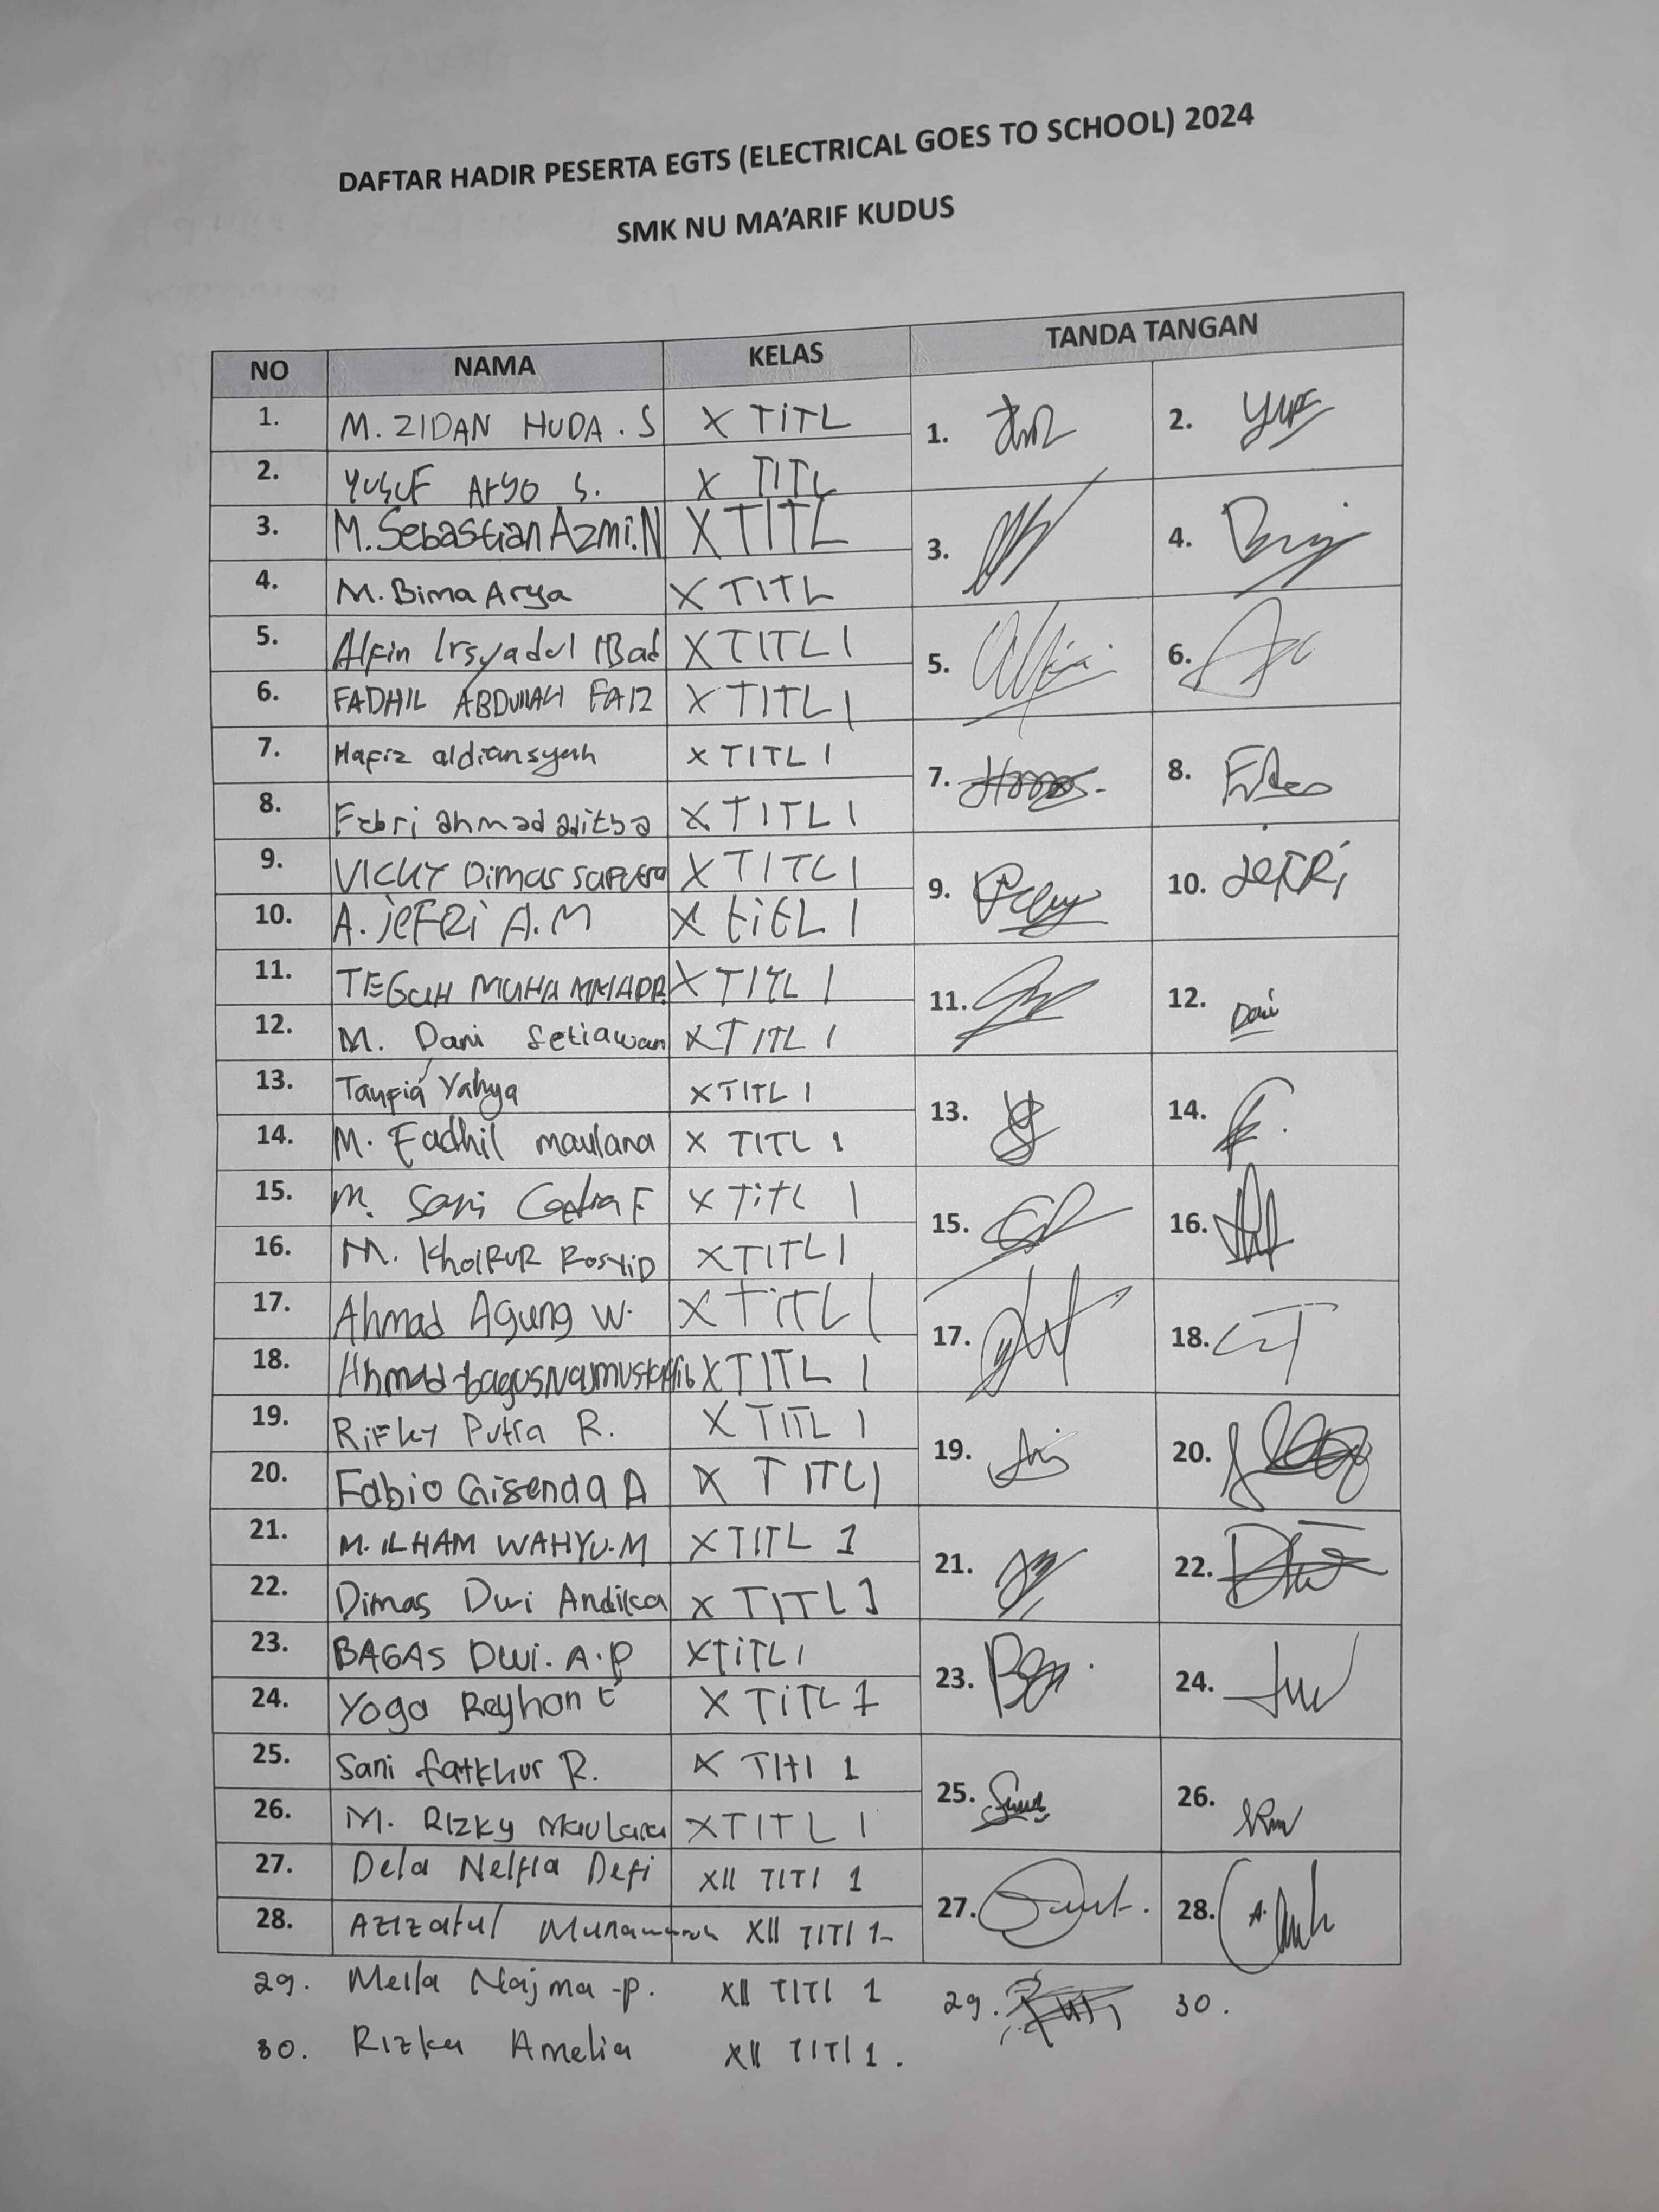 DAFTAR HADIR PESERTA EGTS (ELECTRICAL GOES TO SCHOOL) 2024
SMK NU MA'ARIF KUDUS
NO NAMA KELAS TANDA TANGAN
1. M. ZIDAN HUDA . S X TiTL 1. 2.
2. YUSUF Aryo S. X TITL
3. M. Sebastian Azmi.N X TITL 3. 4.
4. M. Bima Arya X TITL
5. Alfin Irsyadul IBad X TITL 1 5. 6.
6. FADHIL ABDULLAH FAIZ X TITL 1
7. Hafiz aldiansyah X TITL 1 7. 8.
8. Febri ahmad aditya X TITL 1
9. VICKY Dimas saputra X TITL 1 9. 10. JEFRi
10. A. jEFRi A.M X titL 1
11. TEGUH MUHAMMAD R X TITL 1 11. 12. Dani
12. M. Dani Setiawan X TITL 1
13. Taufiq Yahya X TITL 1 13. 14.
14. M. Fadhil maulana X TITL 1
15. M. Sani F X TiTL 1 15. 16.
16. M. KhoiRUR RosYiD X TITL 1
17. Ahmad Agung W. X TiTL 1 17. 18.
18. Ahmad bagus X TITL 1
19. RiFky Putra R. X TITL 1 19. 20.
20. Fabio Gisenda A X TITL 1
21. M. ILHAM WAHYU.M X TITL 1 21. 22.
22. Dimas Dwi Andika X TITL 1
23. BAGAS DWi. A.P X TiTL 1 23. 24.
24. Yoga Reyhan E X TiTL 1
25. Sani fatkhur R. X TITl 1 25. 26.
26. M. RIZKy Maulana X TITL 1
27. Dela Nelfia Defi XII TITl 1 27. 28.
28. Azizatul Munawaroh XII TITl 1
29. Meila Najma .p. XII TITl 1 29. 30.
30. Rizka Amelia XII TITl 1.